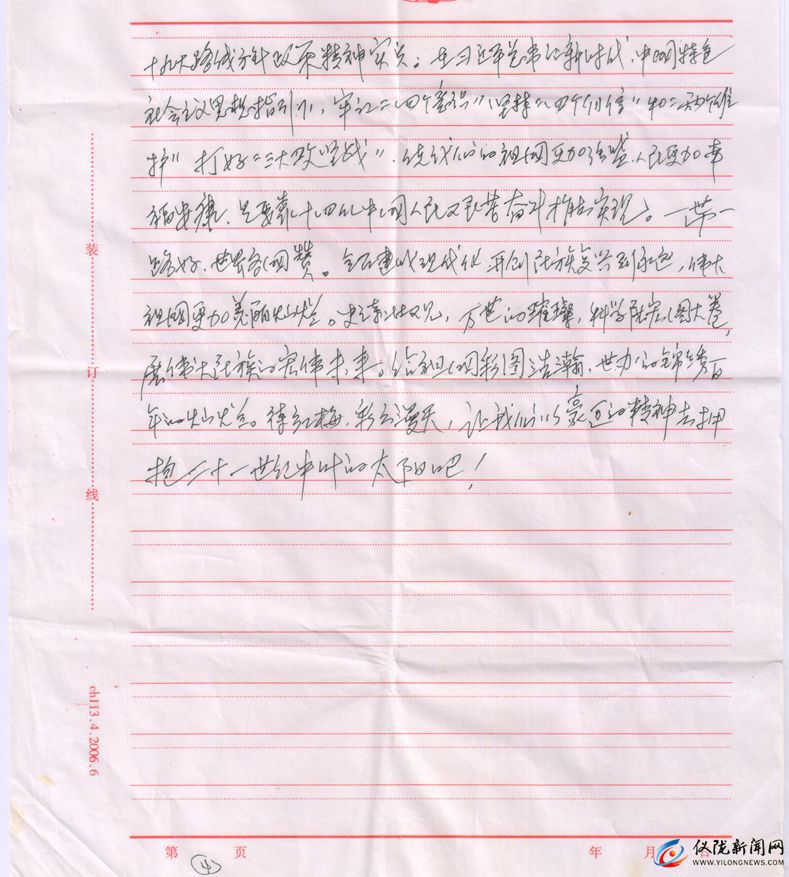 十九大路线方针政策精神实质。在习近平总书记新时代，中国特色
社会主义思想指引下，牢记“四个意识”坚持“四个自信”和“两个维
护”打好“三大攻坚战”，使我们的祖国更加强盛，人民更加幸
福安康，是要靠十四亿中国人民又艰苦奋斗 实现。一带一
路好，世界各国赞。全面建成现代化 民族复兴 ，伟大
祖国更加美丽灿烂。 ，万世的璀璨，科学 宏图大卷，
展伟大民族的宏伟未来。给祖国彩图浩瀚，世 的锦绣百
年的灿烂。待红梅，彩云漫天，让我们以豪迈的精神去拥
抱二十一世纪中叶的太阳吧！
装
订
线
ch113.4.2006.6
第 ④ 页
年 月 日
仪陇新闻网
WWW.YILONGNEWS.COM